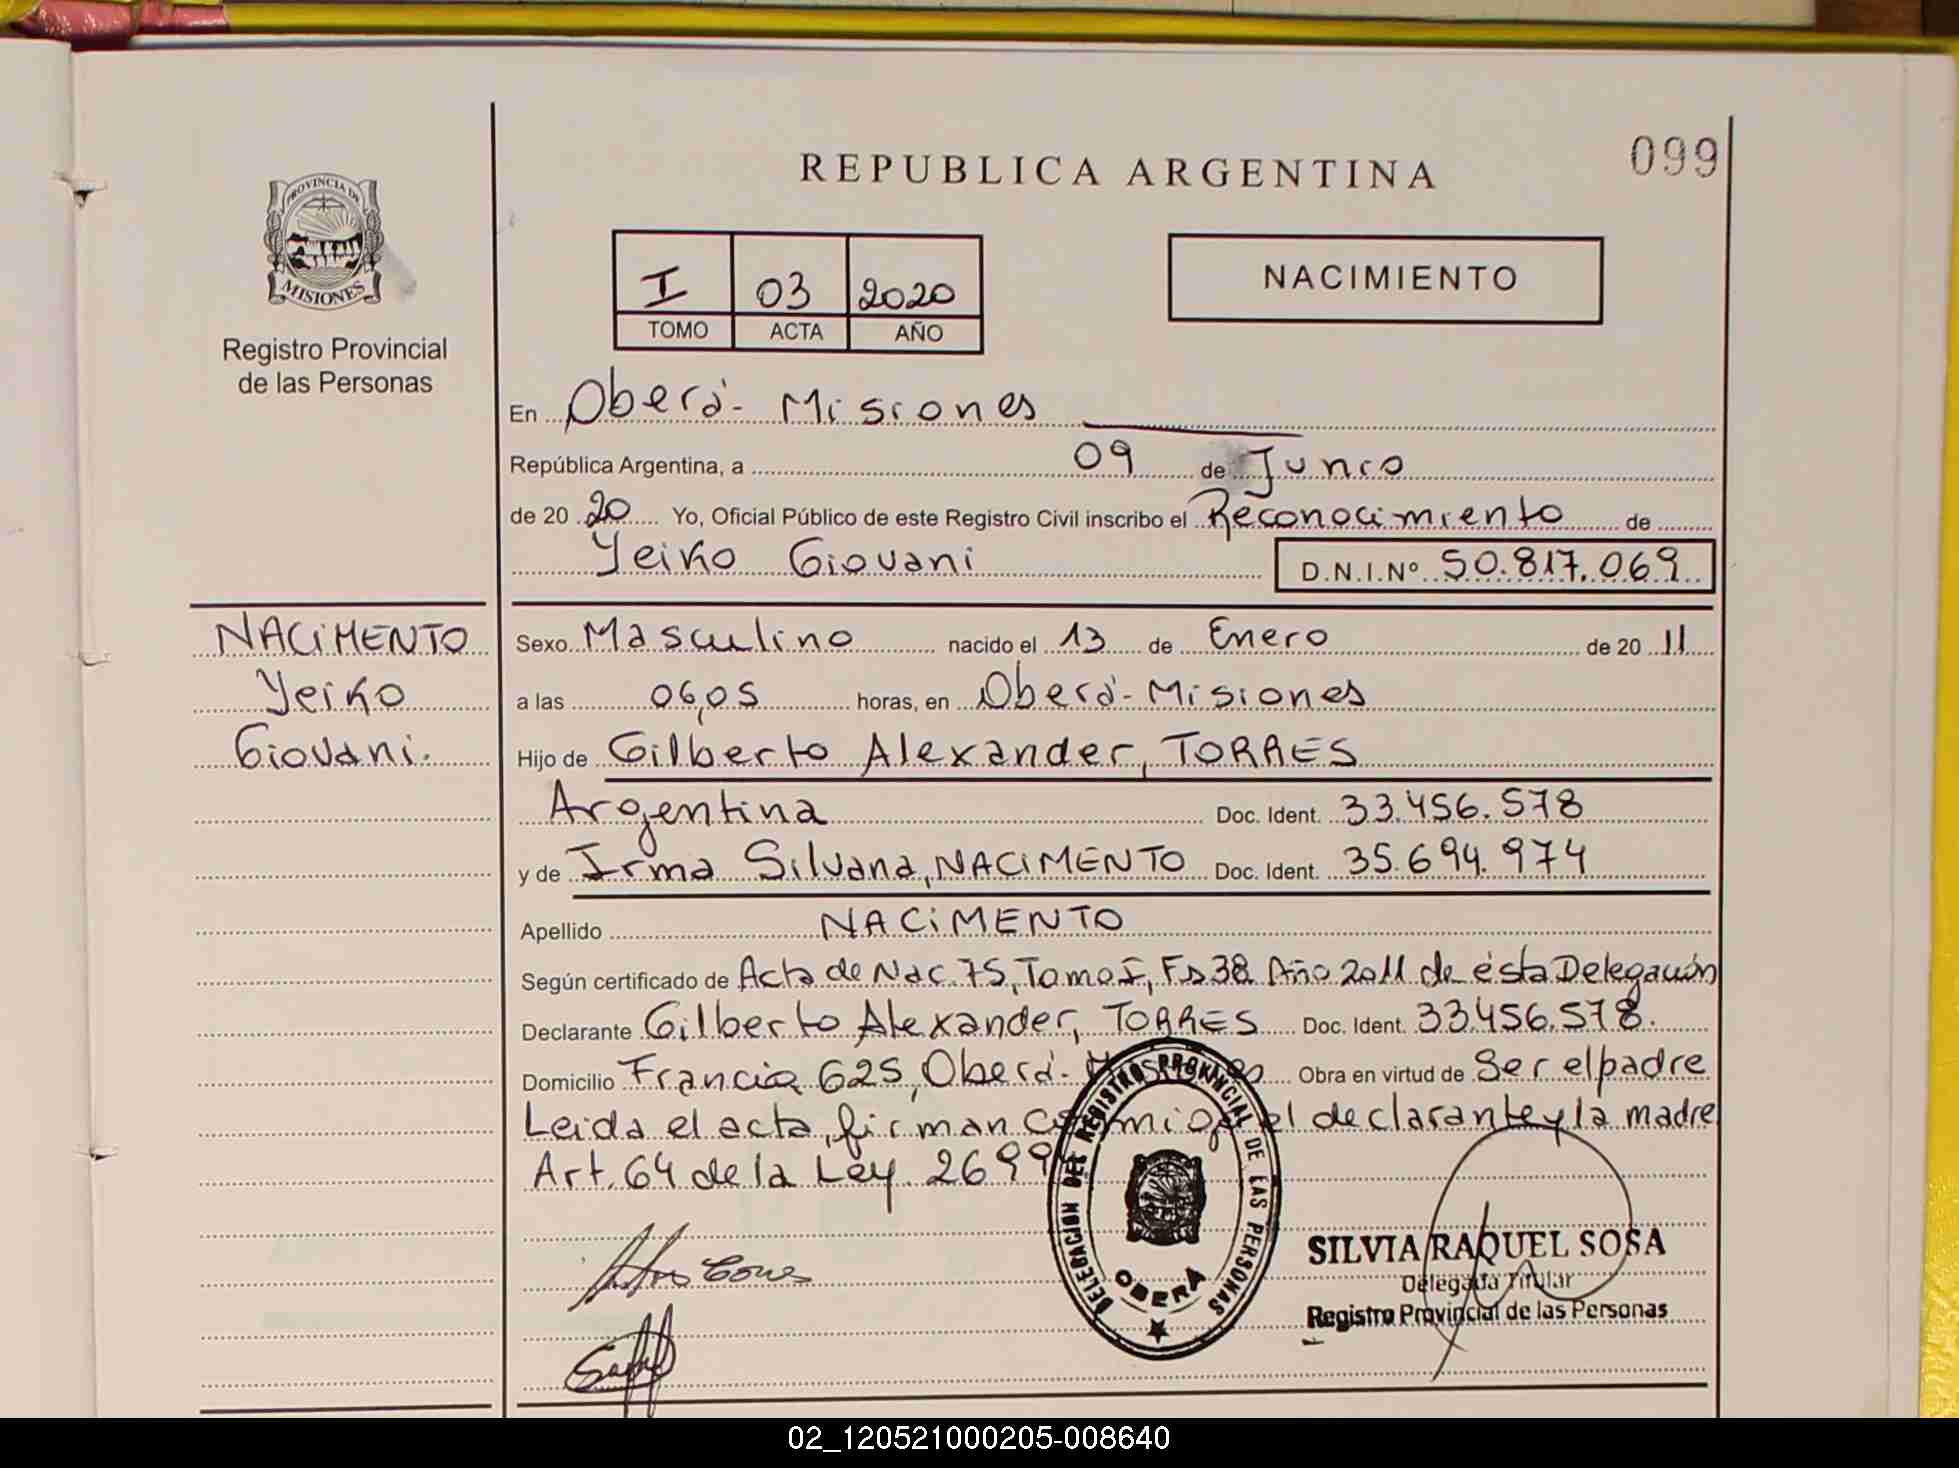 REPUBLICA ARGENTINA
099
PROVINCIA DE
MISIONES
Registro Provincial
de las Personas
I 03 2020
TOMO ACTA AÑO
NACIMIENTO
En Oberá - Misiones
República Argentina, a 09 de Junio
de 20 20 Yo, Oficial Público de este Registro Civil inscribo el Reconocimiento de
Yeiko Giovani D.N.I.Nº 50.817.069
NACIMENTO
Yeiko
Giovani.
Sexo Masculino nacido el 13 de Enero de 20 11
a las 06,05 horas, en Oberá - Misiones
Hijo de Gilberto Alexander, TORRES
Argentina Doc. Ident. 33.456.578
y de Irma Silvana, NACIMENTO Doc. Ident. 35.694.974
Apellido NACIMENTO
Según certificado de Acta de Nac. 75, Tomo I, Fs 38 Año 2011 de ésta Delegación
Declarante Gilberto Alexander, TORRES Doc. Ident. 33.456.578.
Domicilio Francia 625, Oberá - Misiones Obra en virtud de Ser el padre
Leida el acta, firman conmigo, el declarante y la madre
Art. 64 de la Ley. 26994
DELEGACION DEL REGISTRO PROVINCIAL DE LAS PERSONAS
OBERÁ
SILVIA RAQUEL SOSA
Delegada Titular
Registro Provincial de las Personas
02_120521000205-008640